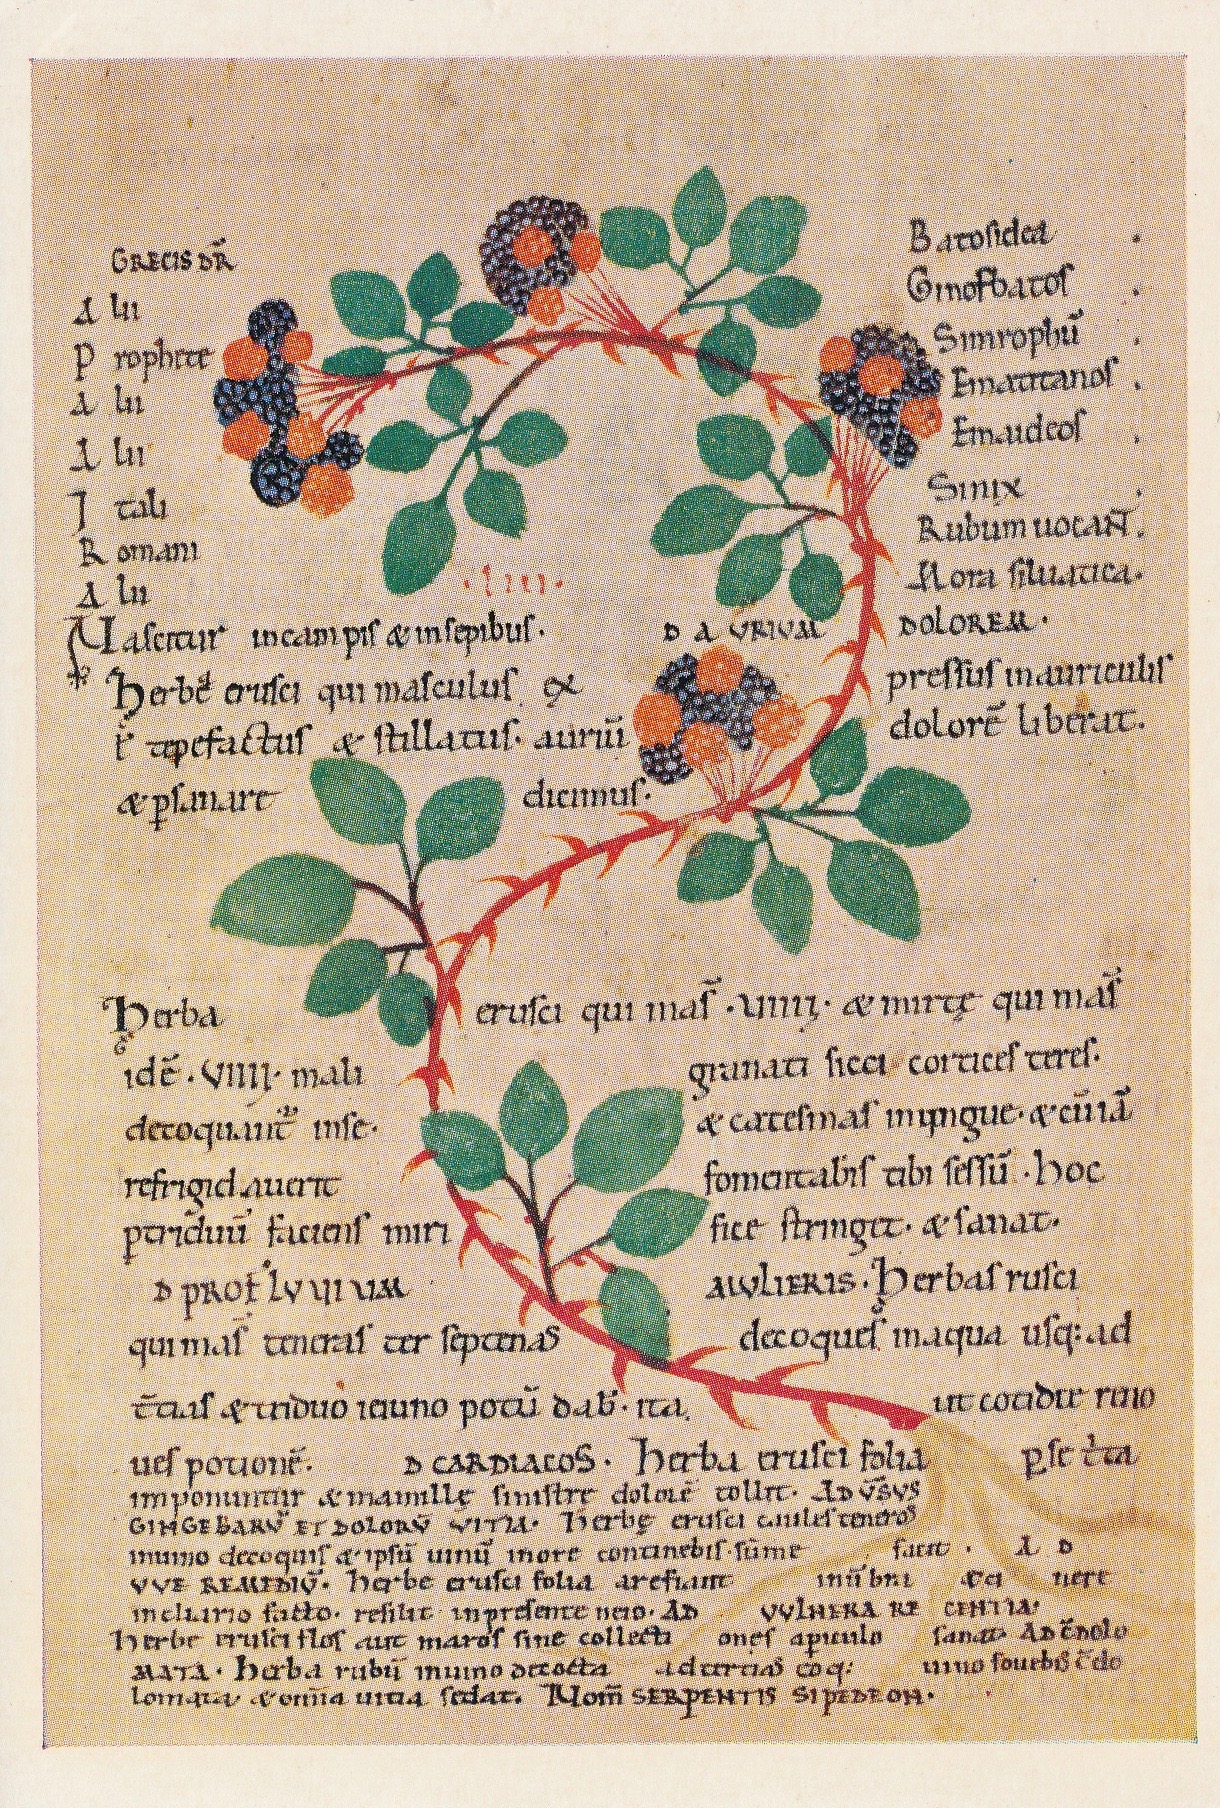 GRECIS DR̄ Batosidea .
Alii Ginosbatos .
Prophete Simrophū .
Alii Ematitanos .
Alii Emaideos .
Itali Sinix .
Romani Rubum uocaÑ.
Alii Mora siluatica.
·liii·
Nascitur in campis & in sepibus. D AURIUM DOLOREM.
Herbe erusci qui masculus ex pressus in auriculis
tepefactus & stillatus. auriū dolorē liberat.
& psanare dicimus.
Herba erusci qui mas̄ ·VIIII· & mirtę qui mas̄
idē ·VIIII· mali granati sicci cortices teres.
decoquant inse. & catesmas inpingue. & cū iā
refrigidauerit fomentabis tibi sessū. Hoc
ptriduū faciens miri fice stringet. & sanat.
D PROFLVVIUM MULIERIS. Herbas rusci
qui mas̄ teneras ter septenas decoques inaqua usq: ad
t̄tias & triduo ieiuno potū dab. ita ut cotidie reno
ues potionē. D CARDIACOS. Herba erusci folia p se t̄ta
imponuntur & mamille sinistre dolorē tollit. AD ŪSUS
GINGEBARŪ ET DOLORŪ VITIA. Herbę erusci caules teneros
inuino decoquis & ipsū uinū inore continebis. sūme facit. A D
VVE REMEDIŪ. Herbe erusci folia arefiant
facto. resilit inpresente AD VVLNERA RE CENTIA.
Herbe erusci flos aut sine collecti ones apriculo sanat.
MATA. Herba rubū inuino decocta ad tertias coq: uino
& omīa uitia sedat. Nom̄ SERPENTIS SIPEDEON.